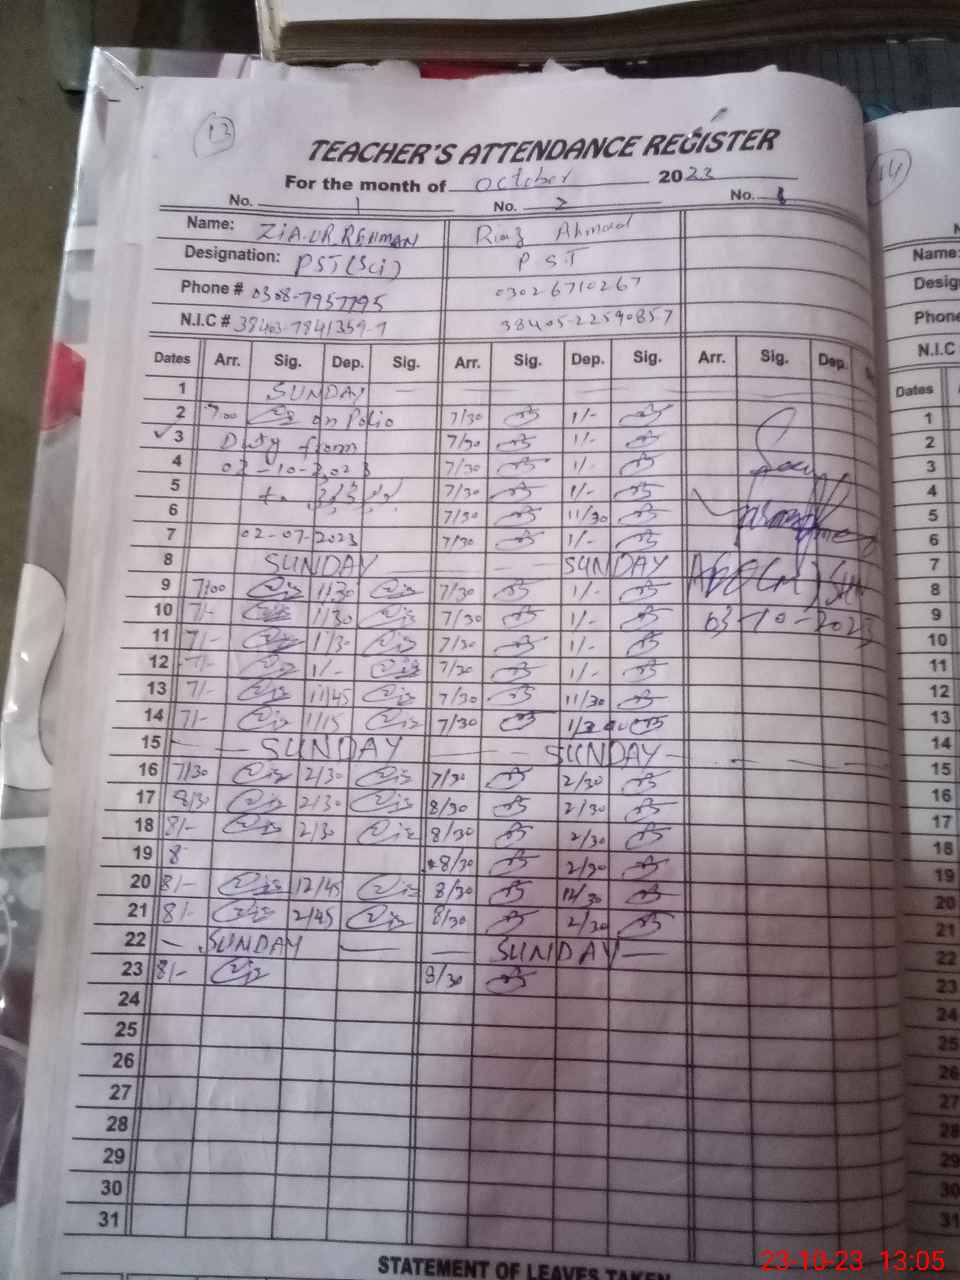 13
TEACHER'S ATTENDANCE REGISTER
For the month of October 2023
14
No. 1 No. 2 No. 3
Name: ZIA.UR.REHMAN Riaz Ahmad
Designation: PST(Sci) PST
Phone # 0308-7957795 03026710267
N.I.C # 38403-7841359-7 38405-2259085-7
Dates Arr. Sig. Dep. Sig. Arr. Sig. Dep. Sig. Arr. Sig. Dep.
1 SUNDAY
2 7:00 on Polio 7/30 1/-
3 Duty from 7/30 1/-
4 02-10-2023 7/30 1/-
5 to 7/30 1/-
6 7/30 11/30
7 02-07-2023 7/30 1/-
8 SUNDAY SUNDAY
9 7:00 1/30 7/30 1/- 03-10-2023
10 7/- 1/30 7/30 1/-
11 7/- 1/30 7/30 1/-
12 7/- 1/- 7/30 1/-
13 7/- 11/45 7/30 11/30
14 7/- 1/15 7/30
15 SUNDAY SUNDAY
16 7/30 2/30 7/30 2/30
17 8/30 2/30 8/30 2/30
18 8/- 2/30 8/30 2/30
19 8 8/30 2/30
20 8/- 12/45 8/30
21 8/- 2/45 8/30 2/30
22 SUNDAY SUNDAY
23 8/- 8/30
24
25
26
27
28
29
30
31
STATEMENT OF LEAVES TAKEN
Name:
Phone
N.I.C
Dates
1
2
3
4
5
6
7
8
9
10
11
12
13
14
15
16
17
18
19
20
21
22
23
24
25
26
27
28
29
30
31
23-10-23 13:05